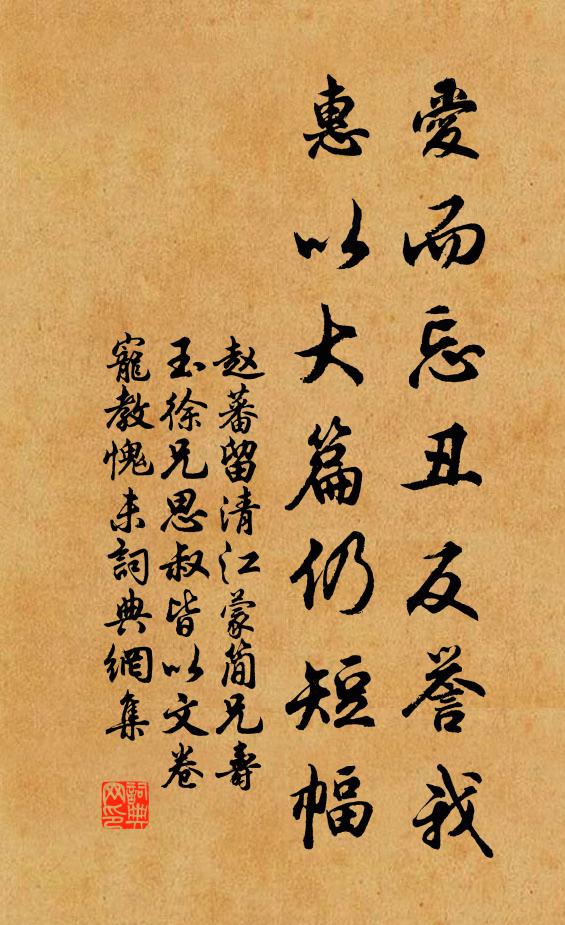 愛而忘丑反誉我
惠以大篇仍短幅
赵蕃留清江蒙简兄寿
玉徐兄思叔皆以文卷
寵教愧未詞典網集
詞典网印